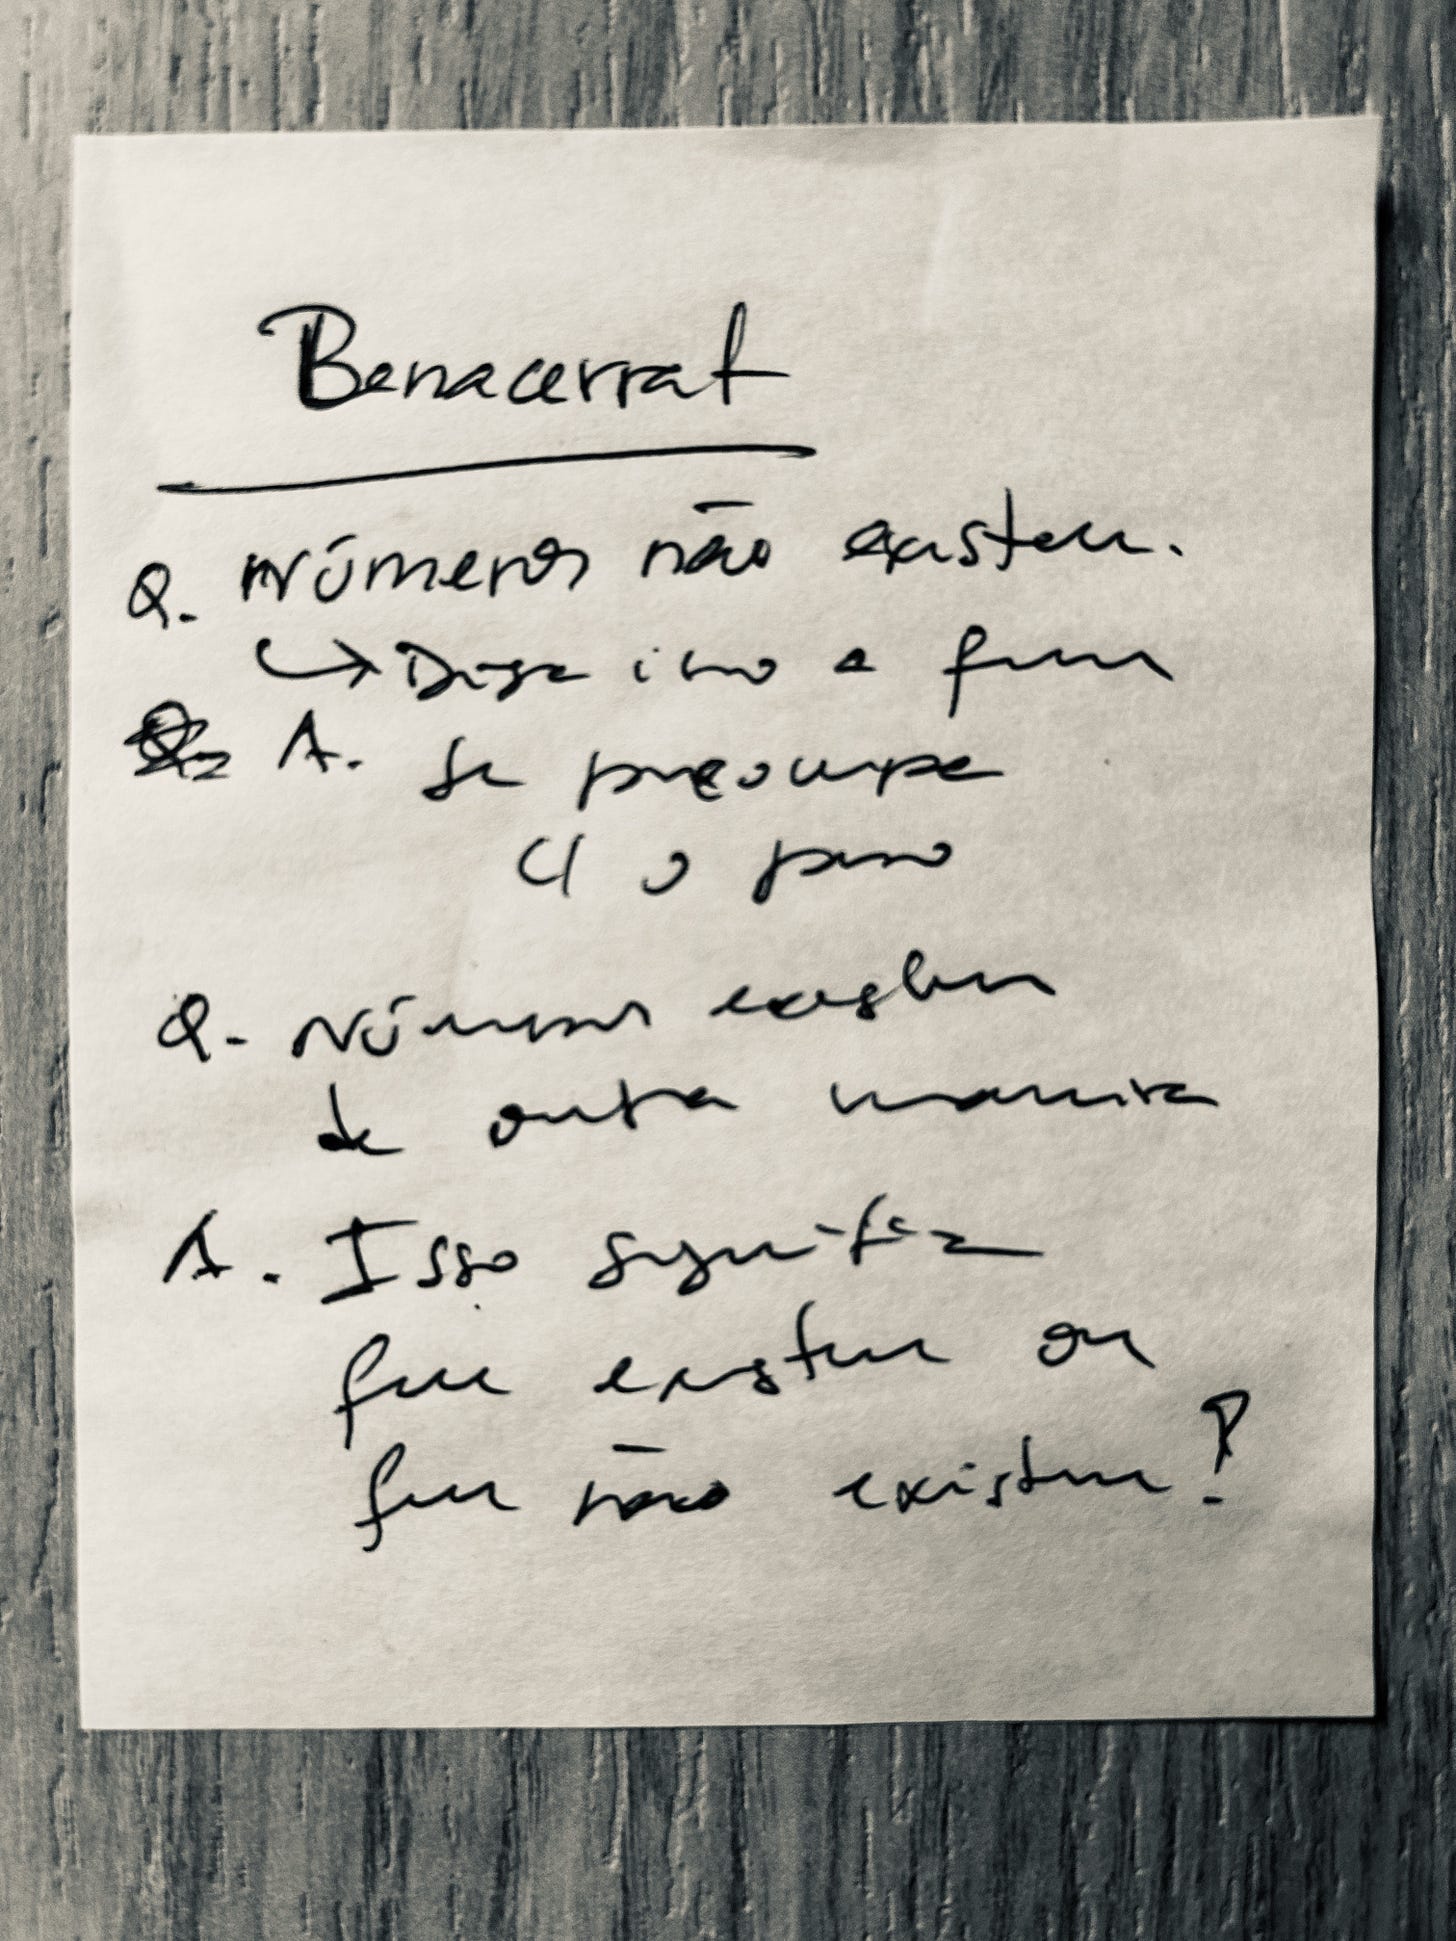 Benacerraf
Q. Números não existem.
↳ Diga isso a quem
A. se preocupa
c/ o peso
Q. Números existem
de outra maneira
A. Isso significa
que existem ou
que não existem?